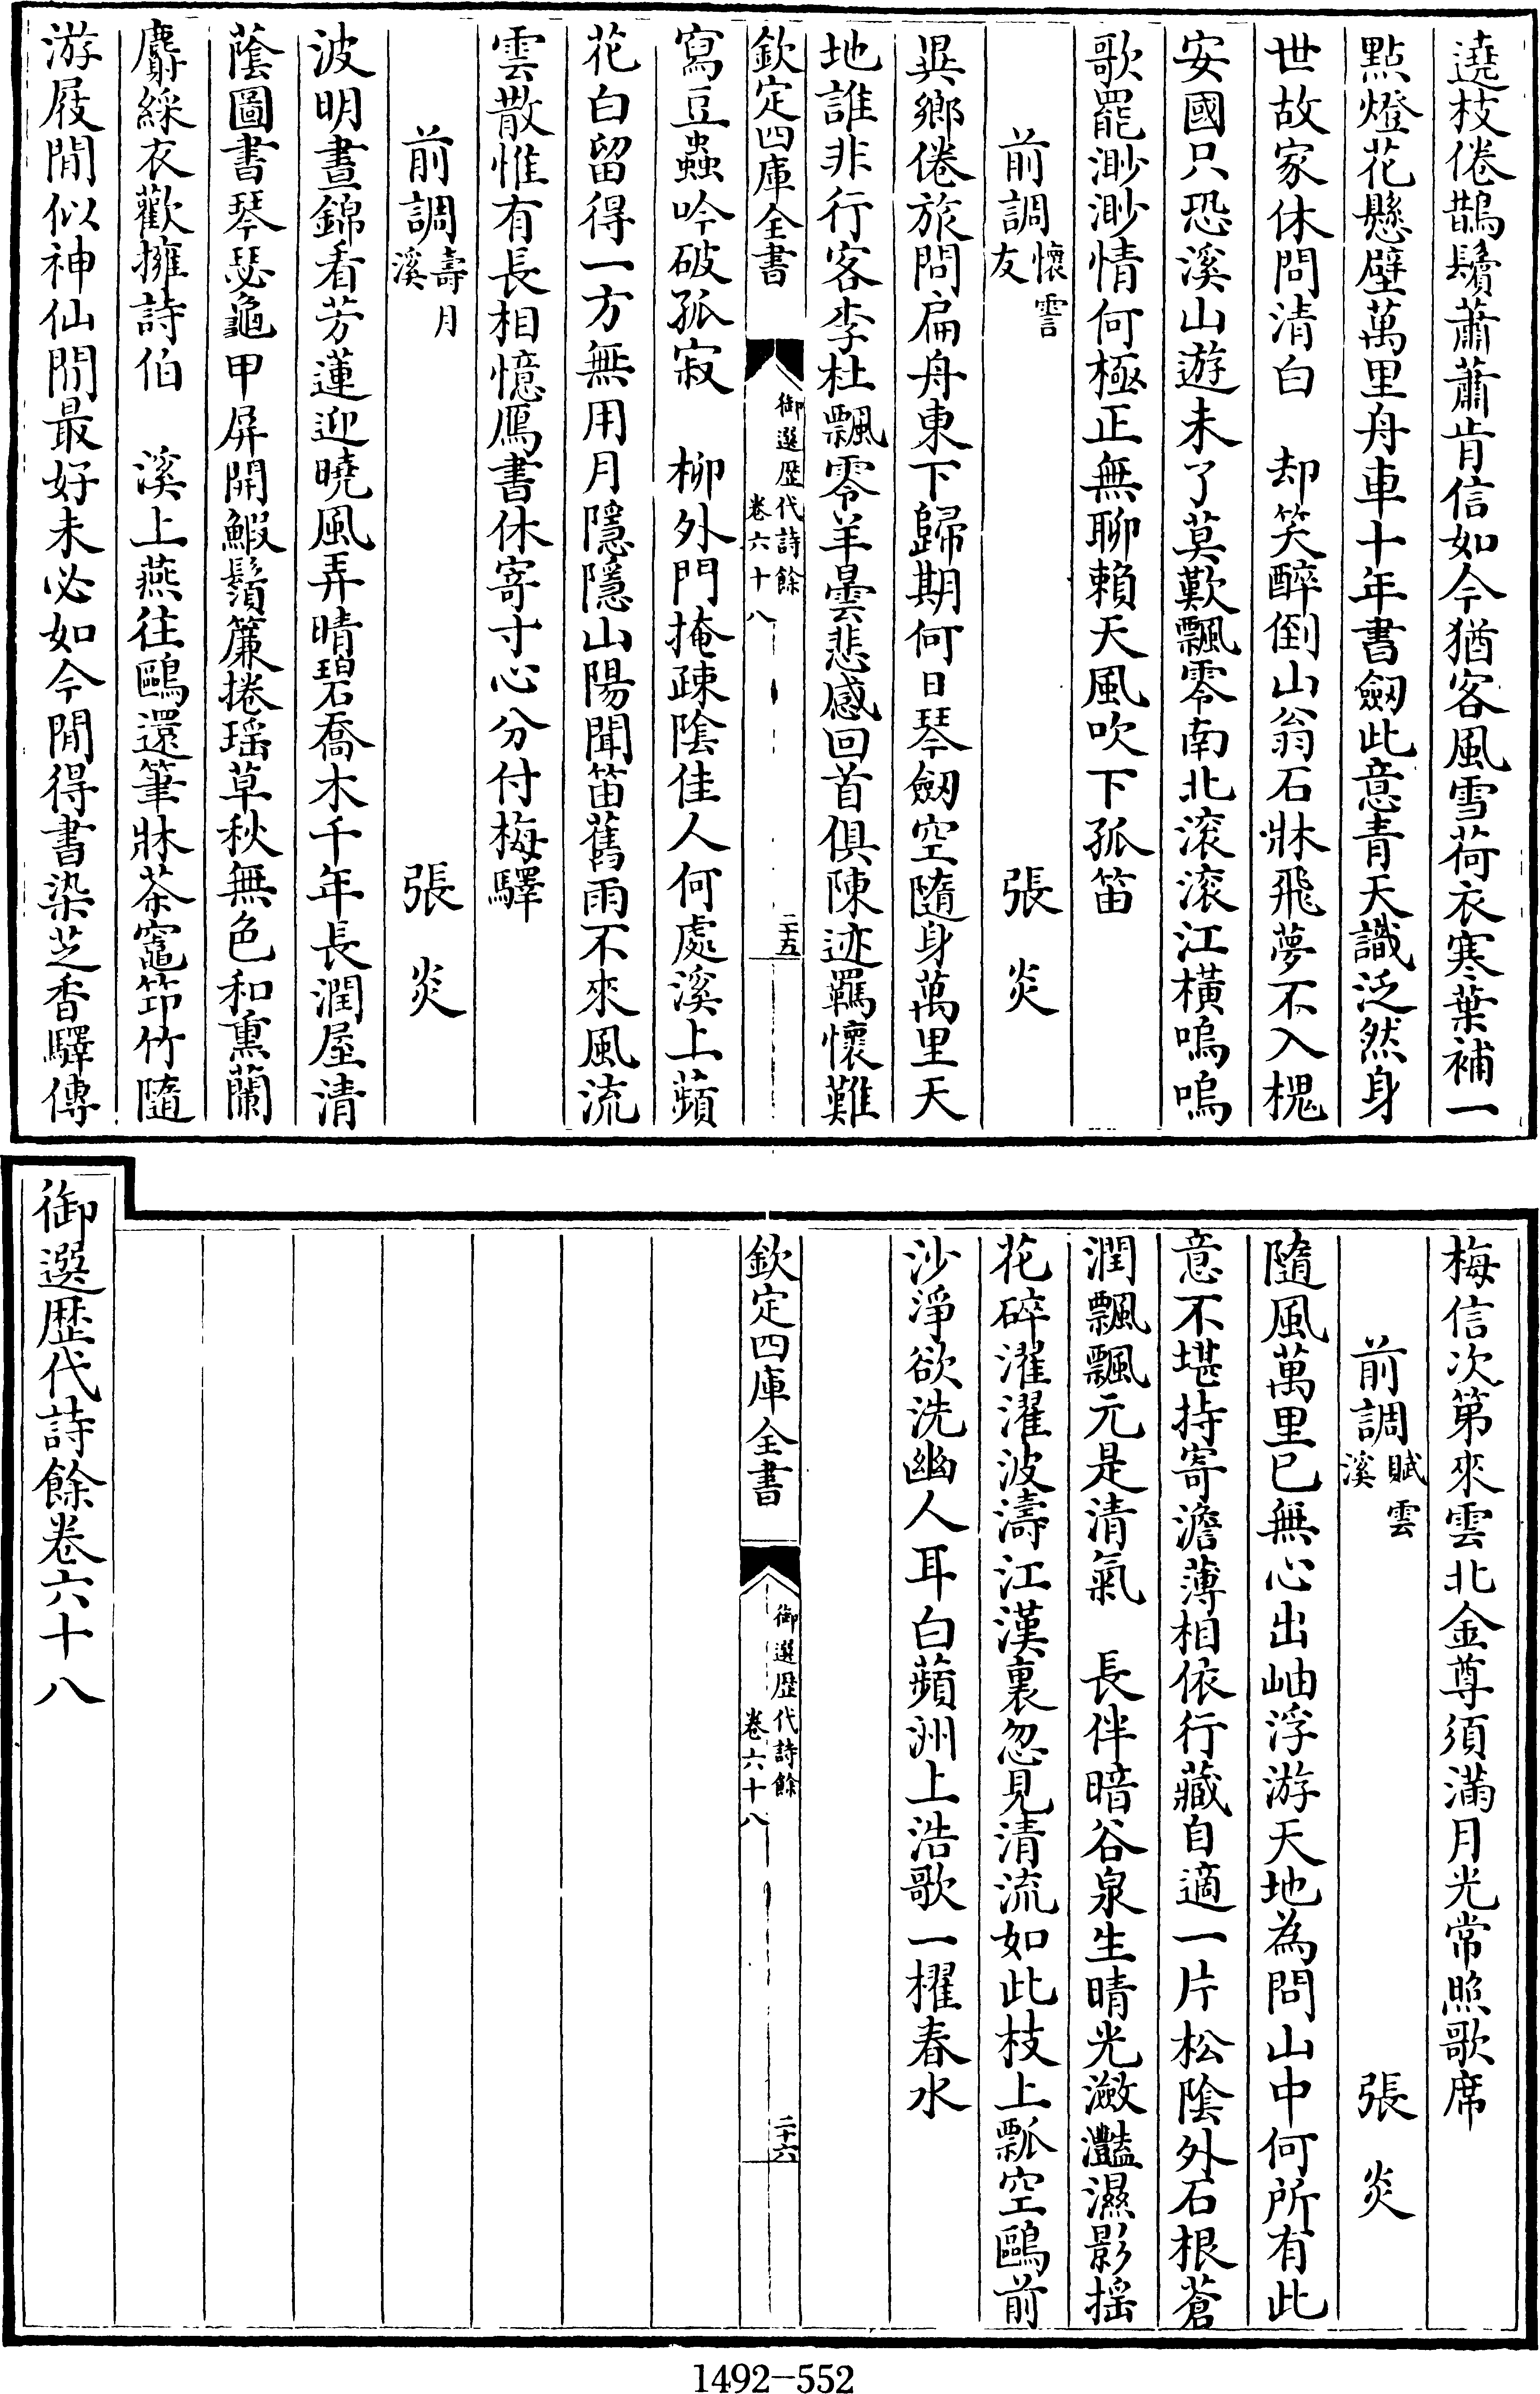 遶枝倦鵲鬢蕭蕭肯信如今猶客風雪荷衣寒葉補一
點燈花懸壁萬里舟車十年書劒此意青天識泛然身
世故家休問清白　却笑醉倒山翁石牀飛夢不入槐
安國只恐溪山遊未了莫歎飄零南北滚滚江橫嗚嗚
歌罷渺渺情何極正無聊賴天風吹下孤笛
前調懷雲友　張炎
異鄉倦旅問扁舟東下歸期何日琴劒空隨身萬里天
地誰非行客李杜飄零羊曇悲感回首俱陳迹羈懷難
欽定四庫全書　御選歴代詩餘卷六十八　二十五
寫豆蟲吟破孤寂　柳外門掩疎陰佳人何處溪上蘋
花白留得一方無用月隱隱山陽聞笛舊雨不來風流
雲散惟有長相憶鴈書休寄寸心分付梅驛
前調壽月溪　張炎
波明晝錦看芳蓮迎曉風弄晴碧喬木千年長潤屋清
蔭圖書琴瑟龜甲屏開鰕鬚簾捲瑶草秋無色和熏蘭
麝綵衣歡擁詩伯　溪上燕往鷗還筆牀茶竈笻竹隨
游屐閒似神仙閒最好未必如今閒得書染芝香驛傳
梅信次第來雲北金尊須滿月光常照歌席
前調賦雲溪　張炎
隨風萬里已無心出岫浮游天地為問山中何所有此
意不堪持寄澹薄相依行藏自適一片松陰外石根蒼
潤飄飄元是清氣　長伴暗谷泉生晴光瀲灩濕影搖
花碎濯濯波濤江漢裏忽見清流如此枝上瓢空鷗前
沙淨欲洗幽人耳白蘋洲上浩歌一櫂春水
欽定四庫全書　御選歴代詩餘卷六十八　二十六
御選歴代詩餘卷六十八
1492-552